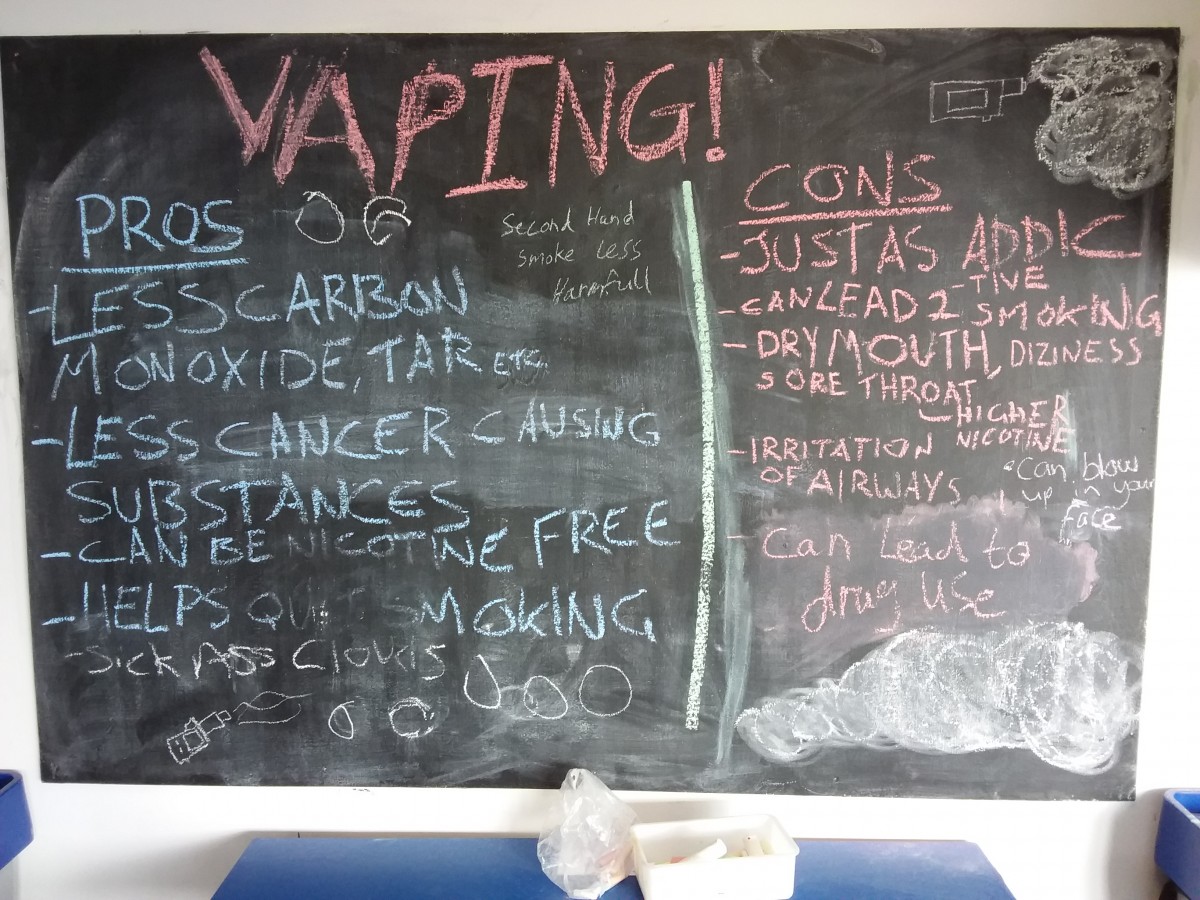 VAPING!
PROS
Second Hand
smoke less
Harmfull
-LESS CARBON
MONOXIDE, TAR ETC
-LESS CANCER CAUSING
SUBSTANCES
-CAN BE NICOTINE FREE
-HELPS QUIT SMOKING
-SICK ASS CLOUDS
CONS
-JUST AS ADDIC
-TIVE
-CAN LEAD 2 SMOKING
-DRY MOUTH, DIZINESS
SORE THROAT
-HIGHER
NICOTINE
-IRRITATION
OF AIRWAYS
•Can blow
up in your
face
-Can Lead to
drug use